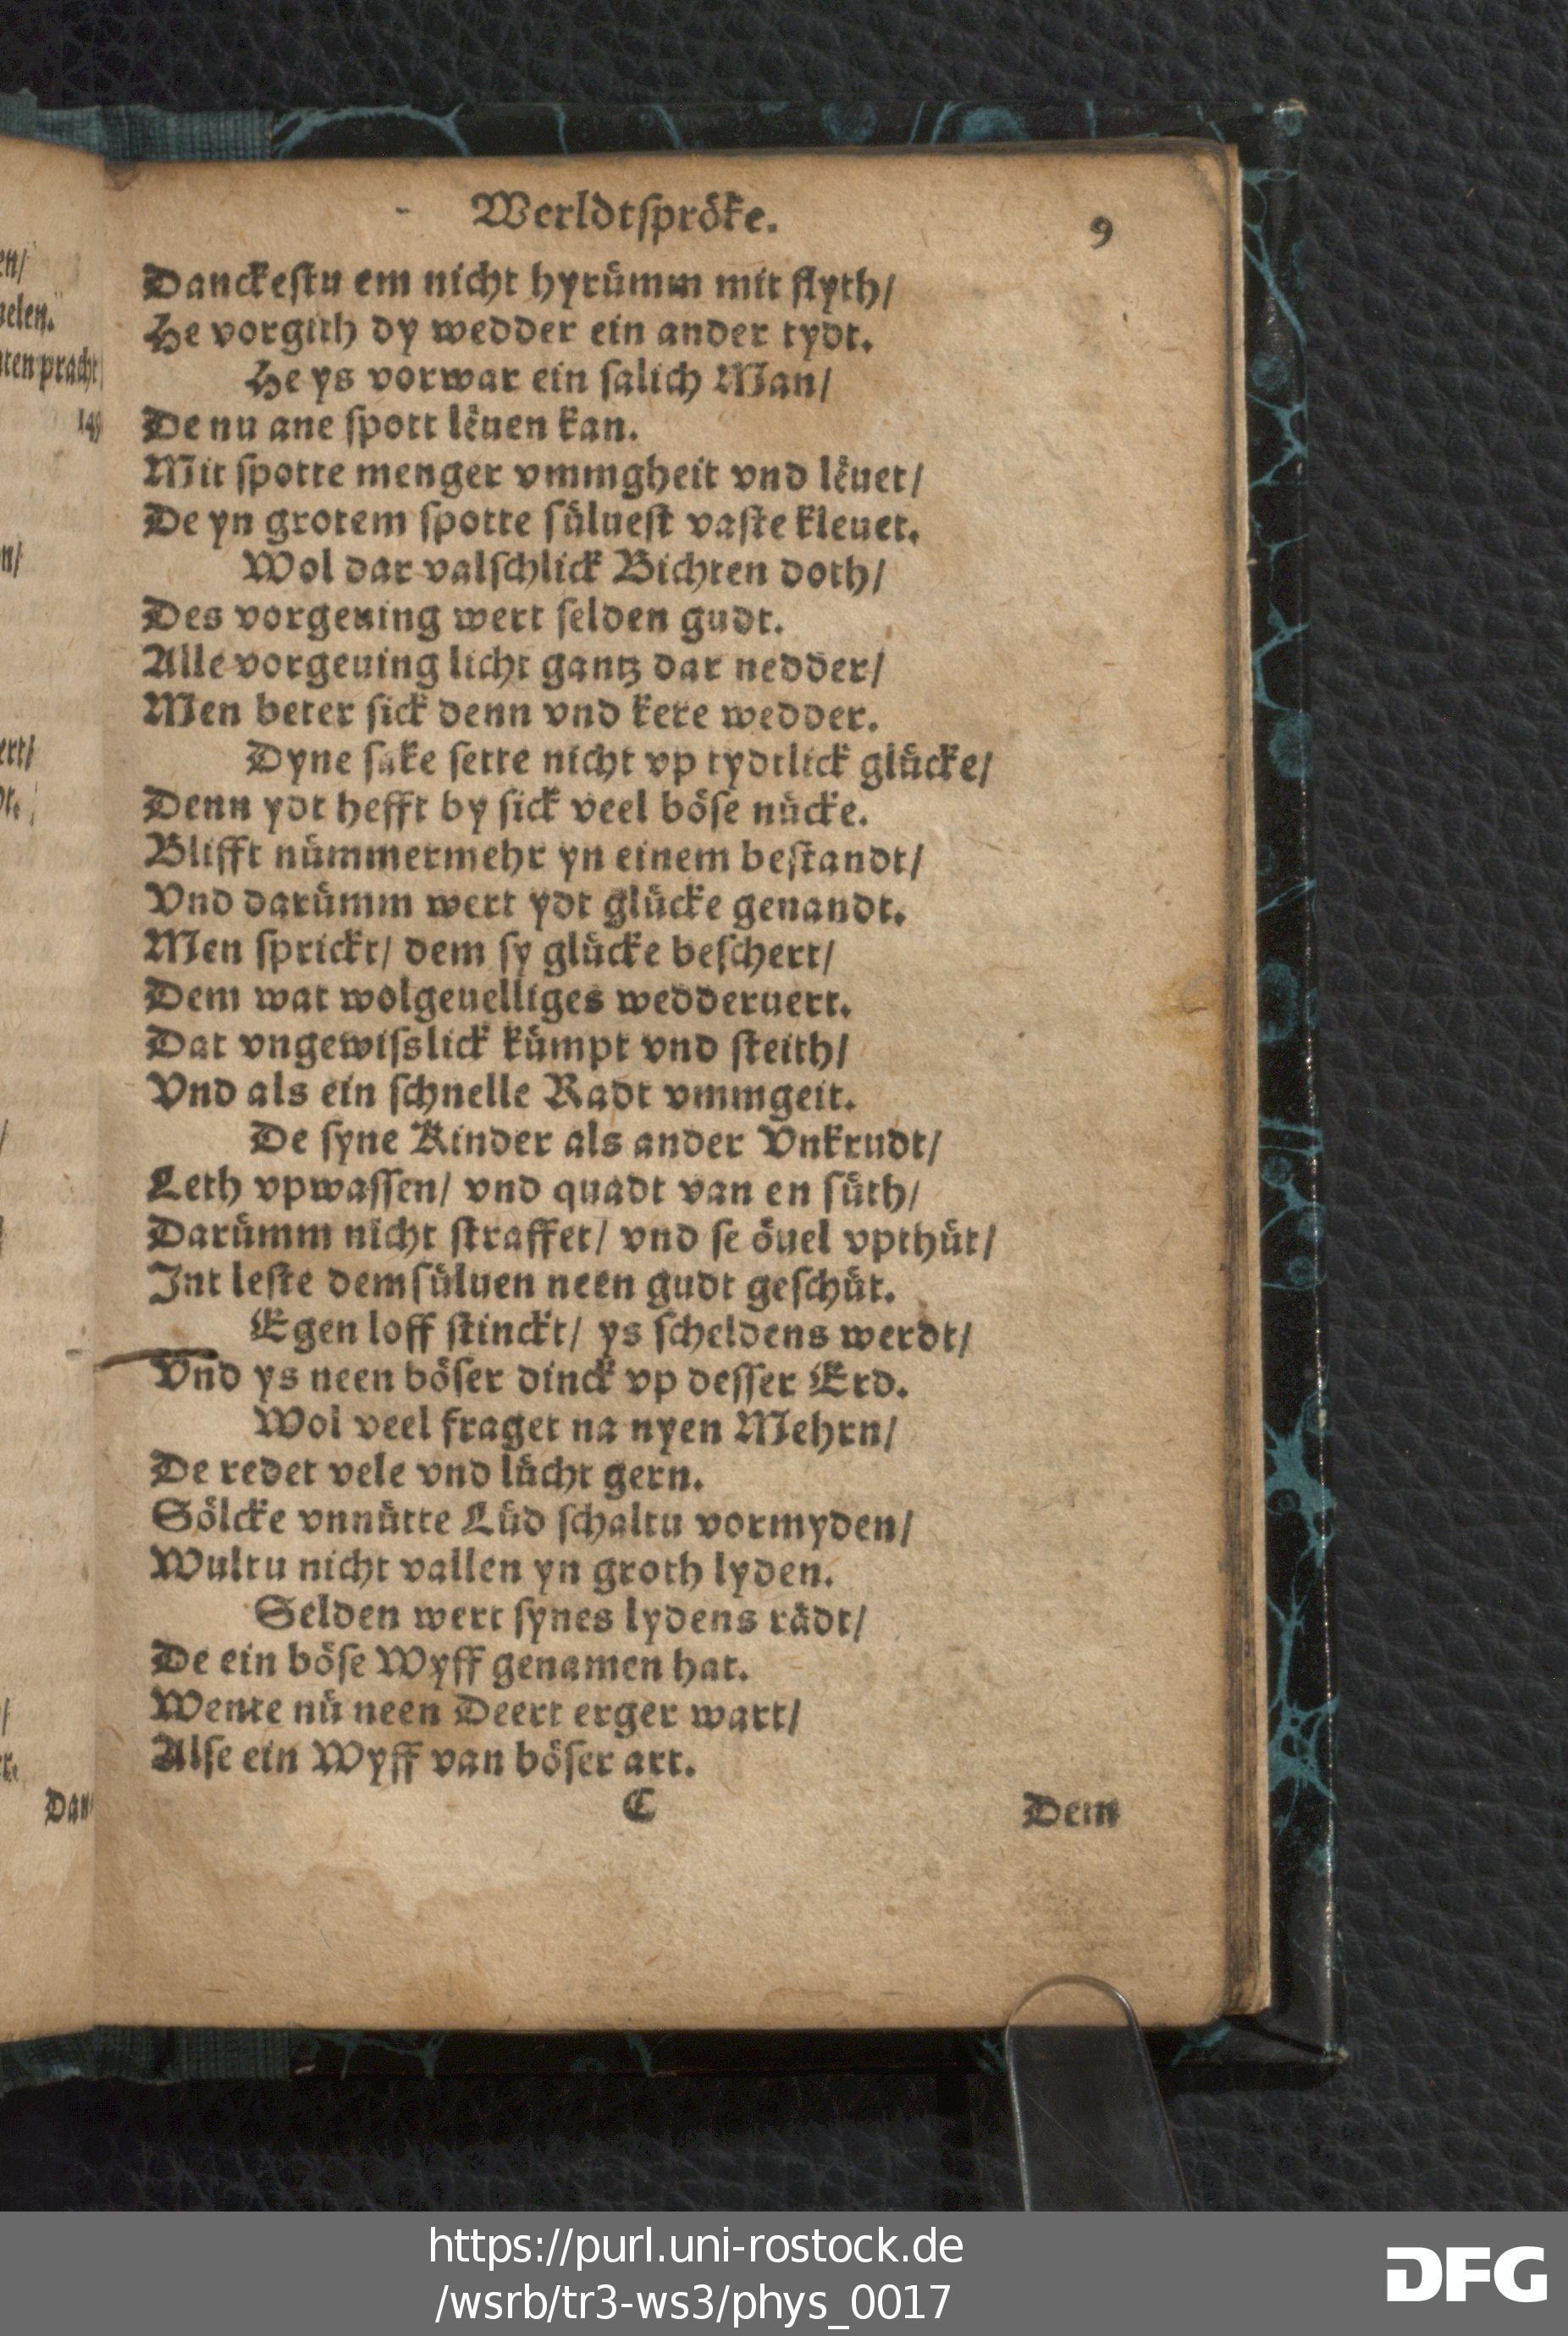 Werldtſpröke.
9
Danckeſtu em nicht hyrümm mit flyth/
He vorgith dy wedder ein ander tydt.
He ys vorwar ein ſalich Man/
De nu ane ſpott lëuen kan.
Mit ſpotte menger vmmgheit vnd lëuet/
De yn grotem ſpotte ſülueſt vaſte kleuet.
Wol dar valſchlick Bichten doth/
Des vorgeuing wert ſelden gudt.
Alle vorgeuing licht gantz dar nedder/
Men beter ſick denn vnd kere wedder.
Dyne ſake ſette nicht vp tydtlick glücke/
Denn ydt hefft by ſick veel böſe nücke.
Blifft nümmermehr yn einem beſtandt/
Vnd darümm wert ydt glücke genandt.
Men ſprickt/ dem ſy glücke beſchert/
Dem wat wolgeuelliges wedderuert.
Dat vngewiſslick kümpt vnd ſteith/
Vnd als ein ſchnelle Radt vmmgeit.
De ſyne Kinder als ander Vnkrudt/
Leth vpwaſſen/ vnd quadt van en ſüth/
Darümm nicht ſtraffet/ vnd ſe öuel vpthüt/
Int leſte demſüluen neen gudt geſchüt.
Egen loff ſtinckt/ ys ſcheldens werdt/
Vnd ys neen böſer dinck vp deſſer Erd.
Wol veel fraget na nyen Mehrn/
De redet vele vnd lücht gern.
Sölcke vnnütte Lüd ſchaltu vormyden/
Wultu nicht vallen yn groth lyden.
Selden wert ſynes lydens rädt/
De ein böſe Wyff genamen hat.
Wente nü neen Deert erger wart/
Alſe ein Wyff van böſer art.
C
Dem
en/
elen.
ten pracht
149
n/
ert/
Dan
https://purl.uni-rostock.de
/wsrb/tr3-ws3/phys_0017
DFG